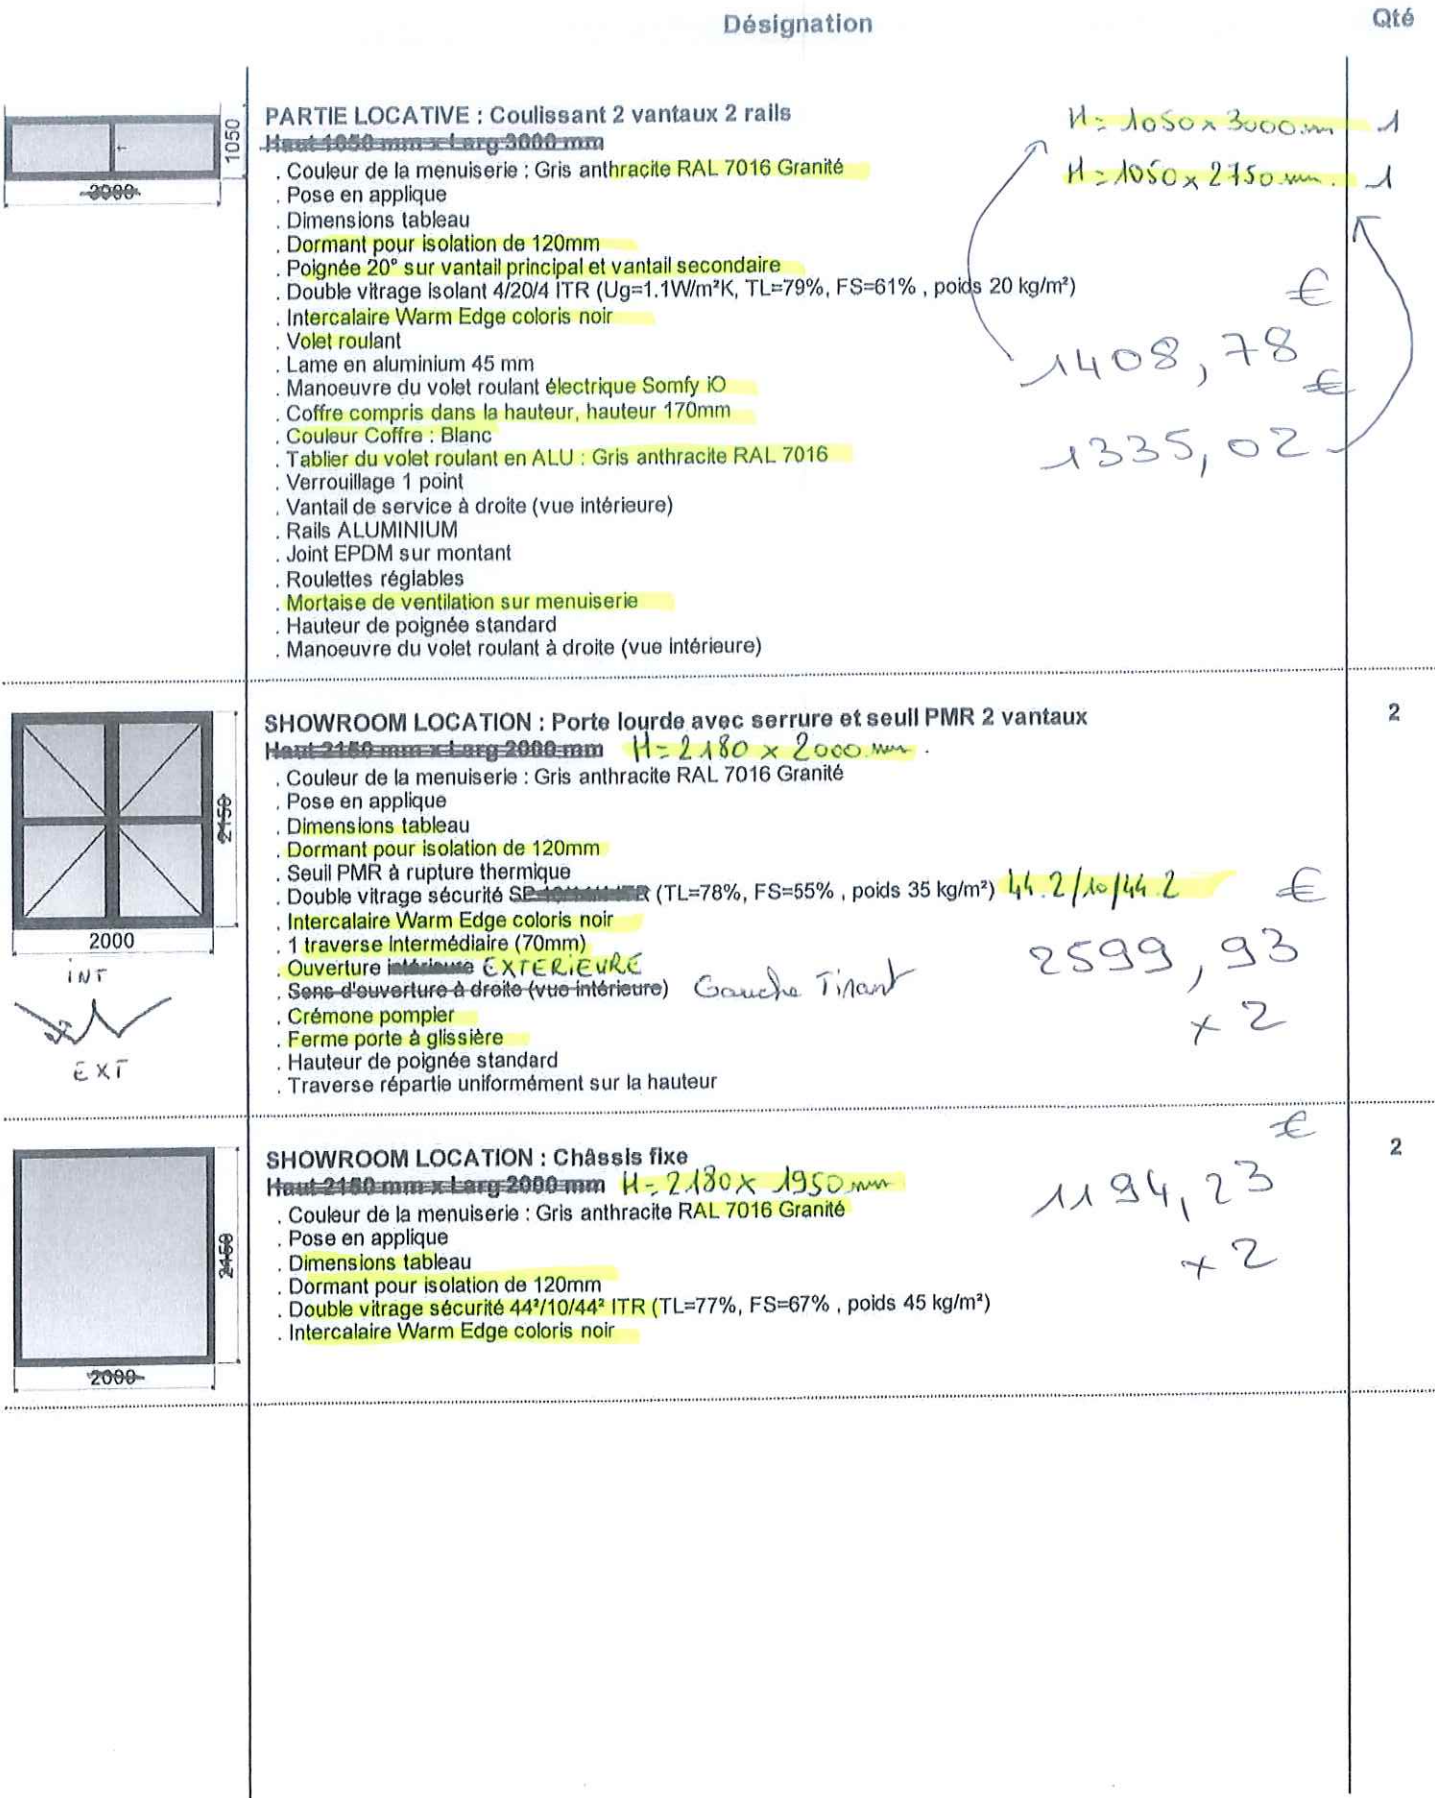 Désignation Qté
PARTIE LOCATIVE : Coulissant 2 vantaux 2 rails
Haut 1050 mm x Larg 3000 mm
H = 1050 x 3000 m 1
H = 1050 x 2750 mm. 1
1050
3000
. Couleur de la menuiserie : Gris anthracite RAL 7016 Granité
. Pose en applique
. Dimensions tableau
. Dormant pour isolation de 120mm
. Poignée 20° sur vantail principal et vantail secondaire
. Double vitrage isolant 4/20/4 ITR (Ug=1.1W/m²K, TL=79%, FS=61% , poids 20 kg/m²)
. Intercalaire Warm Edge coloris noir
. Volet roulant
. Lame en aluminium 45 mm
. Manoeuvre du volet roulant électrique Somfy iO
. Coffre compris dans la hauteur, hauteur 170mm
. Couleur Coffre : Blanc
. Tablier du volet roulant en ALU : Gris anthracite RAL 7016
. Verrouillage 1 point
. Vantail de service à droite (vue intérieure)
. Rails ALUMINIUM
. Joint EPDM sur montant
. Roulettes réglables
. Mortaise de ventilation sur menuiserie
. Hauteur de poignée standard
. Manoeuvre du volet roulant à droite (vue intérieure)
€
1408,78
€
1335,02
SHOWROOM LOCATION : Porte lourde avec serrure et seuil PMR 2 vantaux 2
Haut 2150 mm x Larg 2000 mm H = 2180 x 2000 mm .
2150
2000
INT
EXT
. Couleur de la menuiserie : Gris anthracite RAL 7016 Granité
. Pose en applique
. Dimensions tableau
. Dormant pour isolation de 120mm
. Seuil PMR à rupture thermique
. Double vitrage sécurité (TL=78%, FS=55% , poids 35 kg/m²) 44.2/10/44.2
. Intercalaire Warm Edge coloris noir
. 1 traverse intermédiaire (70mm)
. Ouverture intérieure EXTERIEURE
. Sens d'ouverture à droite (vue intérieure) Gauche Tirant
. Crémone pompier
. Ferme porte à glissière
. Hauteur de poignée standard
. Traverse répartie uniformément sur la hauteur
€
2599,93
x 2
SHOWROOM LOCATION : Châssis fixe 2
Haut 2150 mm x Larg 2000 mm H = 2180 x 1950 mm
2150
2000
. Couleur de la menuiserie : Gris anthracite RAL 7016 Granité
. Pose en applique
. Dimensions tableau
. Dormant pour isolation de 120mm
. Double vitrage sécurité 44²/10/44² ITR (TL=77%, FS=67% , poids 45 kg/m²)
. Intercalaire Warm Edge coloris noir
€
1194,23
x 2